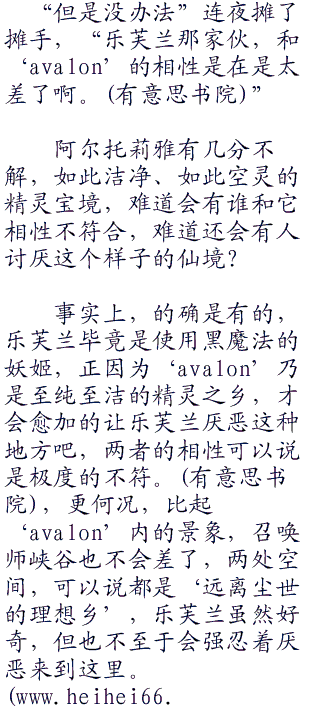 “但是没办法”连夜摊了
摊手，“乐芙兰那家伙，和
‘avalon’的相性是在是太
差了啊。(有意思书院)”
阿尔托莉雅有几分不
解，如此洁净、如此空灵的
精灵宝境，难道会有谁和它
相性不符合，难道还会有人
讨厌这个样子的仙境？
事实上，的确是有的，
乐芙兰毕竟是使用黑魔法的
妖姬，正因为‘avalon’乃
是至纯至洁的精灵之乡，才
会愈加的让乐芙兰厌恶这种
地方吧，两者的相性可以说
是极度的不符。(有意思书
院)，更何况，比起
‘avalon’内的景象，召唤
师峡谷也不会差了，两处空
间，可以说都是‘远离尘世
的理想乡’，乐芙兰虽然好
奇，但也不至于会强忍着厌
恶来到这里。
(www.heihei66.